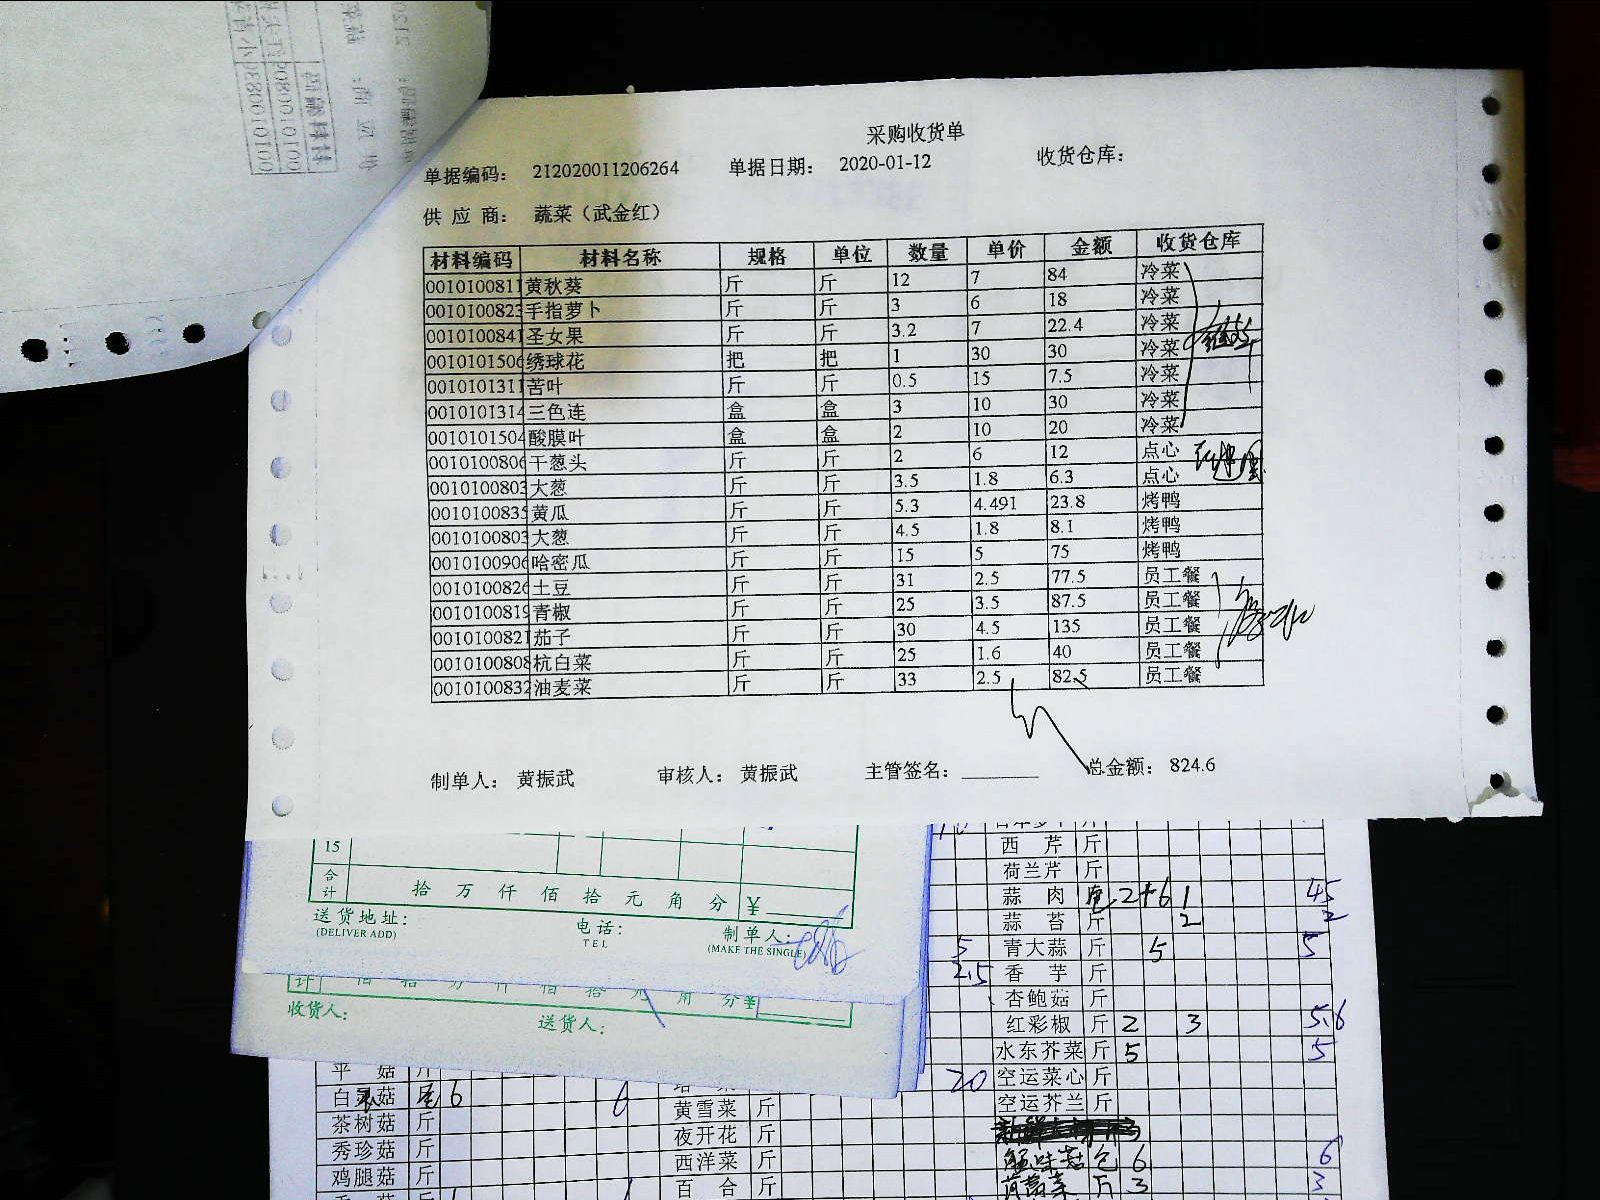 采购收货单
单据编码： 212020011206264 单据日期： 2020-01-12 收货仓库：
供 应 商： 蔬菜（武金红）
材料编码 材料名称 规格 单位 数量 单价 金额 收货仓库
0010100811 黄秋葵 斤 斤 12 7 84 冷菜
0010100823 手指萝卜 斤 斤 3 6 18 冷菜
0010100841 圣女果 斤 斤 3.2 7 22.4 冷菜
0010101506 绣球花 把 把 1 30 30 冷菜
0010101311 苦叶 斤 斤 0.5 15 7.5 冷菜
0010101314 三色连 盒 盒 3 10 30 冷菜
0010101504 酸膜叶 盒 盒 2 10 20 冷菜
0010100806 干葱头 斤 斤 2 6 12 点心
0010100803 大葱 斤 斤 3.5 1.8 6.3 点心
0010100835 黄瓜 斤 斤 5.3 4.491 23.8 烤鸭
0010100803 大葱 斤 斤 4.5 1.8 8.1 烤鸭
0010100906 哈密瓜 斤 斤 15 5 75 烤鸭
0010100826 土豆 斤 斤 31 2.5 77.5 员工餐
0010100819 青椒 斤 斤 25 3.5 87.5 员工餐
0010100821 茄子 斤 斤 30 4.5 135 员工餐
0010100808 杭白菜 斤 斤 25 1.6 40 员工餐
0010100832 油麦菜 斤 斤 33 2.5 82.5 员工餐
制单人： 黄振武 审核人： 黄振武 主管签名： 总金额： 824.6
15
合计 拾 万 仟 佰 拾 元 角 分 ¥
送货地址: 电话: 制单人:
(DELIVER ADD) TEL (MAKE THE SINGLE)
计 拾 万 仟 佰 拾 元 角 分 ¥
收货人: 送货人:
西 芹 斤
荷兰芹 斤
蒜 肉 2+6 1 45
蒜 苔 斤 2 2
5 青大蒜 斤 5 5
2.5 香 芋 斤
杏鲍菇 斤
红彩椒 斤 2 3 5.6
水东芥菜 斤 5 5
20 空运菜心 斤
空运芥兰 斤
蟹味菇 包 6 6
茼蒿菜 斤 3 3
平 菇 斤
白灵菇 6 6 黄雪菜 斤
茶树菇 斤 夜开花 斤
秀珍菇 斤 西洋菜 斤
鸡腿菇 斤 百 合 斤